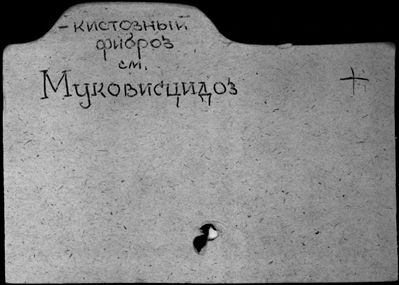 -кистозный
фиброз
см.
Муковисцидоз